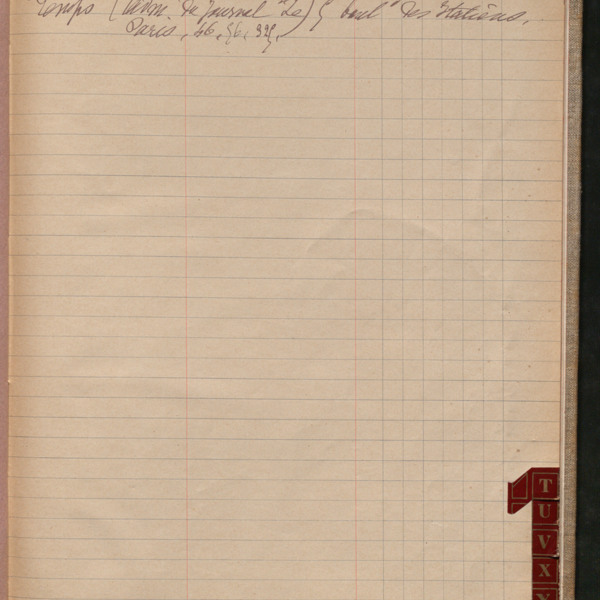 Temps (Adm. de journal Le) 5 boul. des Italiens,
Paris, 46, 56, 325,
T
U
V
X
Y